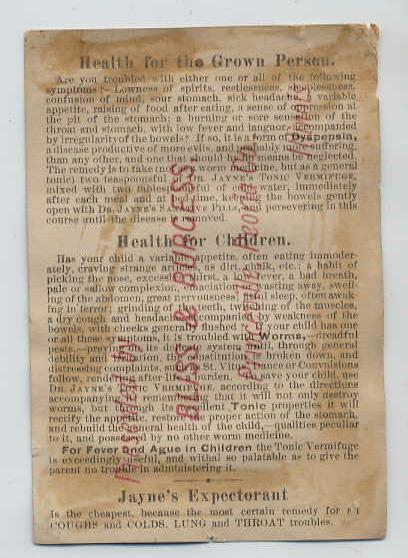 Health for the Grown Person.
Are you troubled with either one or all of the following
symptoms:—Lowness of spirits, restlessness, sleeplessness,
confusion of mind, sour stomach, sick headache, a variable
appetite, raising of food after eating, a sense of oppression at
the pit of the stomach; a burning or sore sensation of the
throat and stomach, with low fever and languor, accompanied
by irregularity of the bowels? If so, it is a form of Dyspepsia,
a disease productive of more evils, and possibly more suffering,
than any other, and one that should by no means be neglected.
The remedy is to take not as a worm medicine, but as a general
tonic) two teaspoonsful of DR. JAYNE'S TONIC VERMIFUGE,
mixed with two tablespoonsful of cold water, immediately
after each meal and at bed time, keeping the bowels gently
open with DR. JAYNE'S SANATIVE PILLS, and persevering in this
course until the disease is removed.
Health for Children.
Has your child a variable appetite, often eating immoder-
ately, craving strange articles, as dirt, chalk, etc.: a habit of
picking the nose, excessive thirst, a low fever, a bad breath,
pale or sallow complexion, emaciation or wasting away, swell-
ing of the abdomen, great nervousness, fitful sleep, often awak-
ing in terror; grinding of the teeth, twitching of the muscles,
a dry cough and headache, accompanied by weakness of the
bowels, with cheeks generally flushed? If your child has one
or all these symptoms, it is troubled with Worms,—dreadful
pests,—preying on its delicate system, until, through general
debility and irritation, the constitution is broken down, and
distressing complaints, such as St. Vitus' Dance or Convulsions
follow, rendering after life a burden. To relieve your child, use
DR. JAYNE'S TONIC VERMIFUGE, according to the directions
accompanying it, remembering that it will not only destroy
worms, but through its excellent Tonic properties it will
rectify the appetite, restore the proper action of the stomach,
and rebuild the general health of the child,—qualities peculiar
to it, and possessed by no other worm medicine.
For Fever and Ague in Children the Tonic Vermifuge
is exceedingly useful, and withal so palatable as to give the
parent no trouble in administering it.
Jayne's Expectorant
Is the cheapest, because the most certain remedy for
COUGHS and COLDS, LUNG and THROAT troubles.
Presented by
BLISS & BURGESS,
Illinois